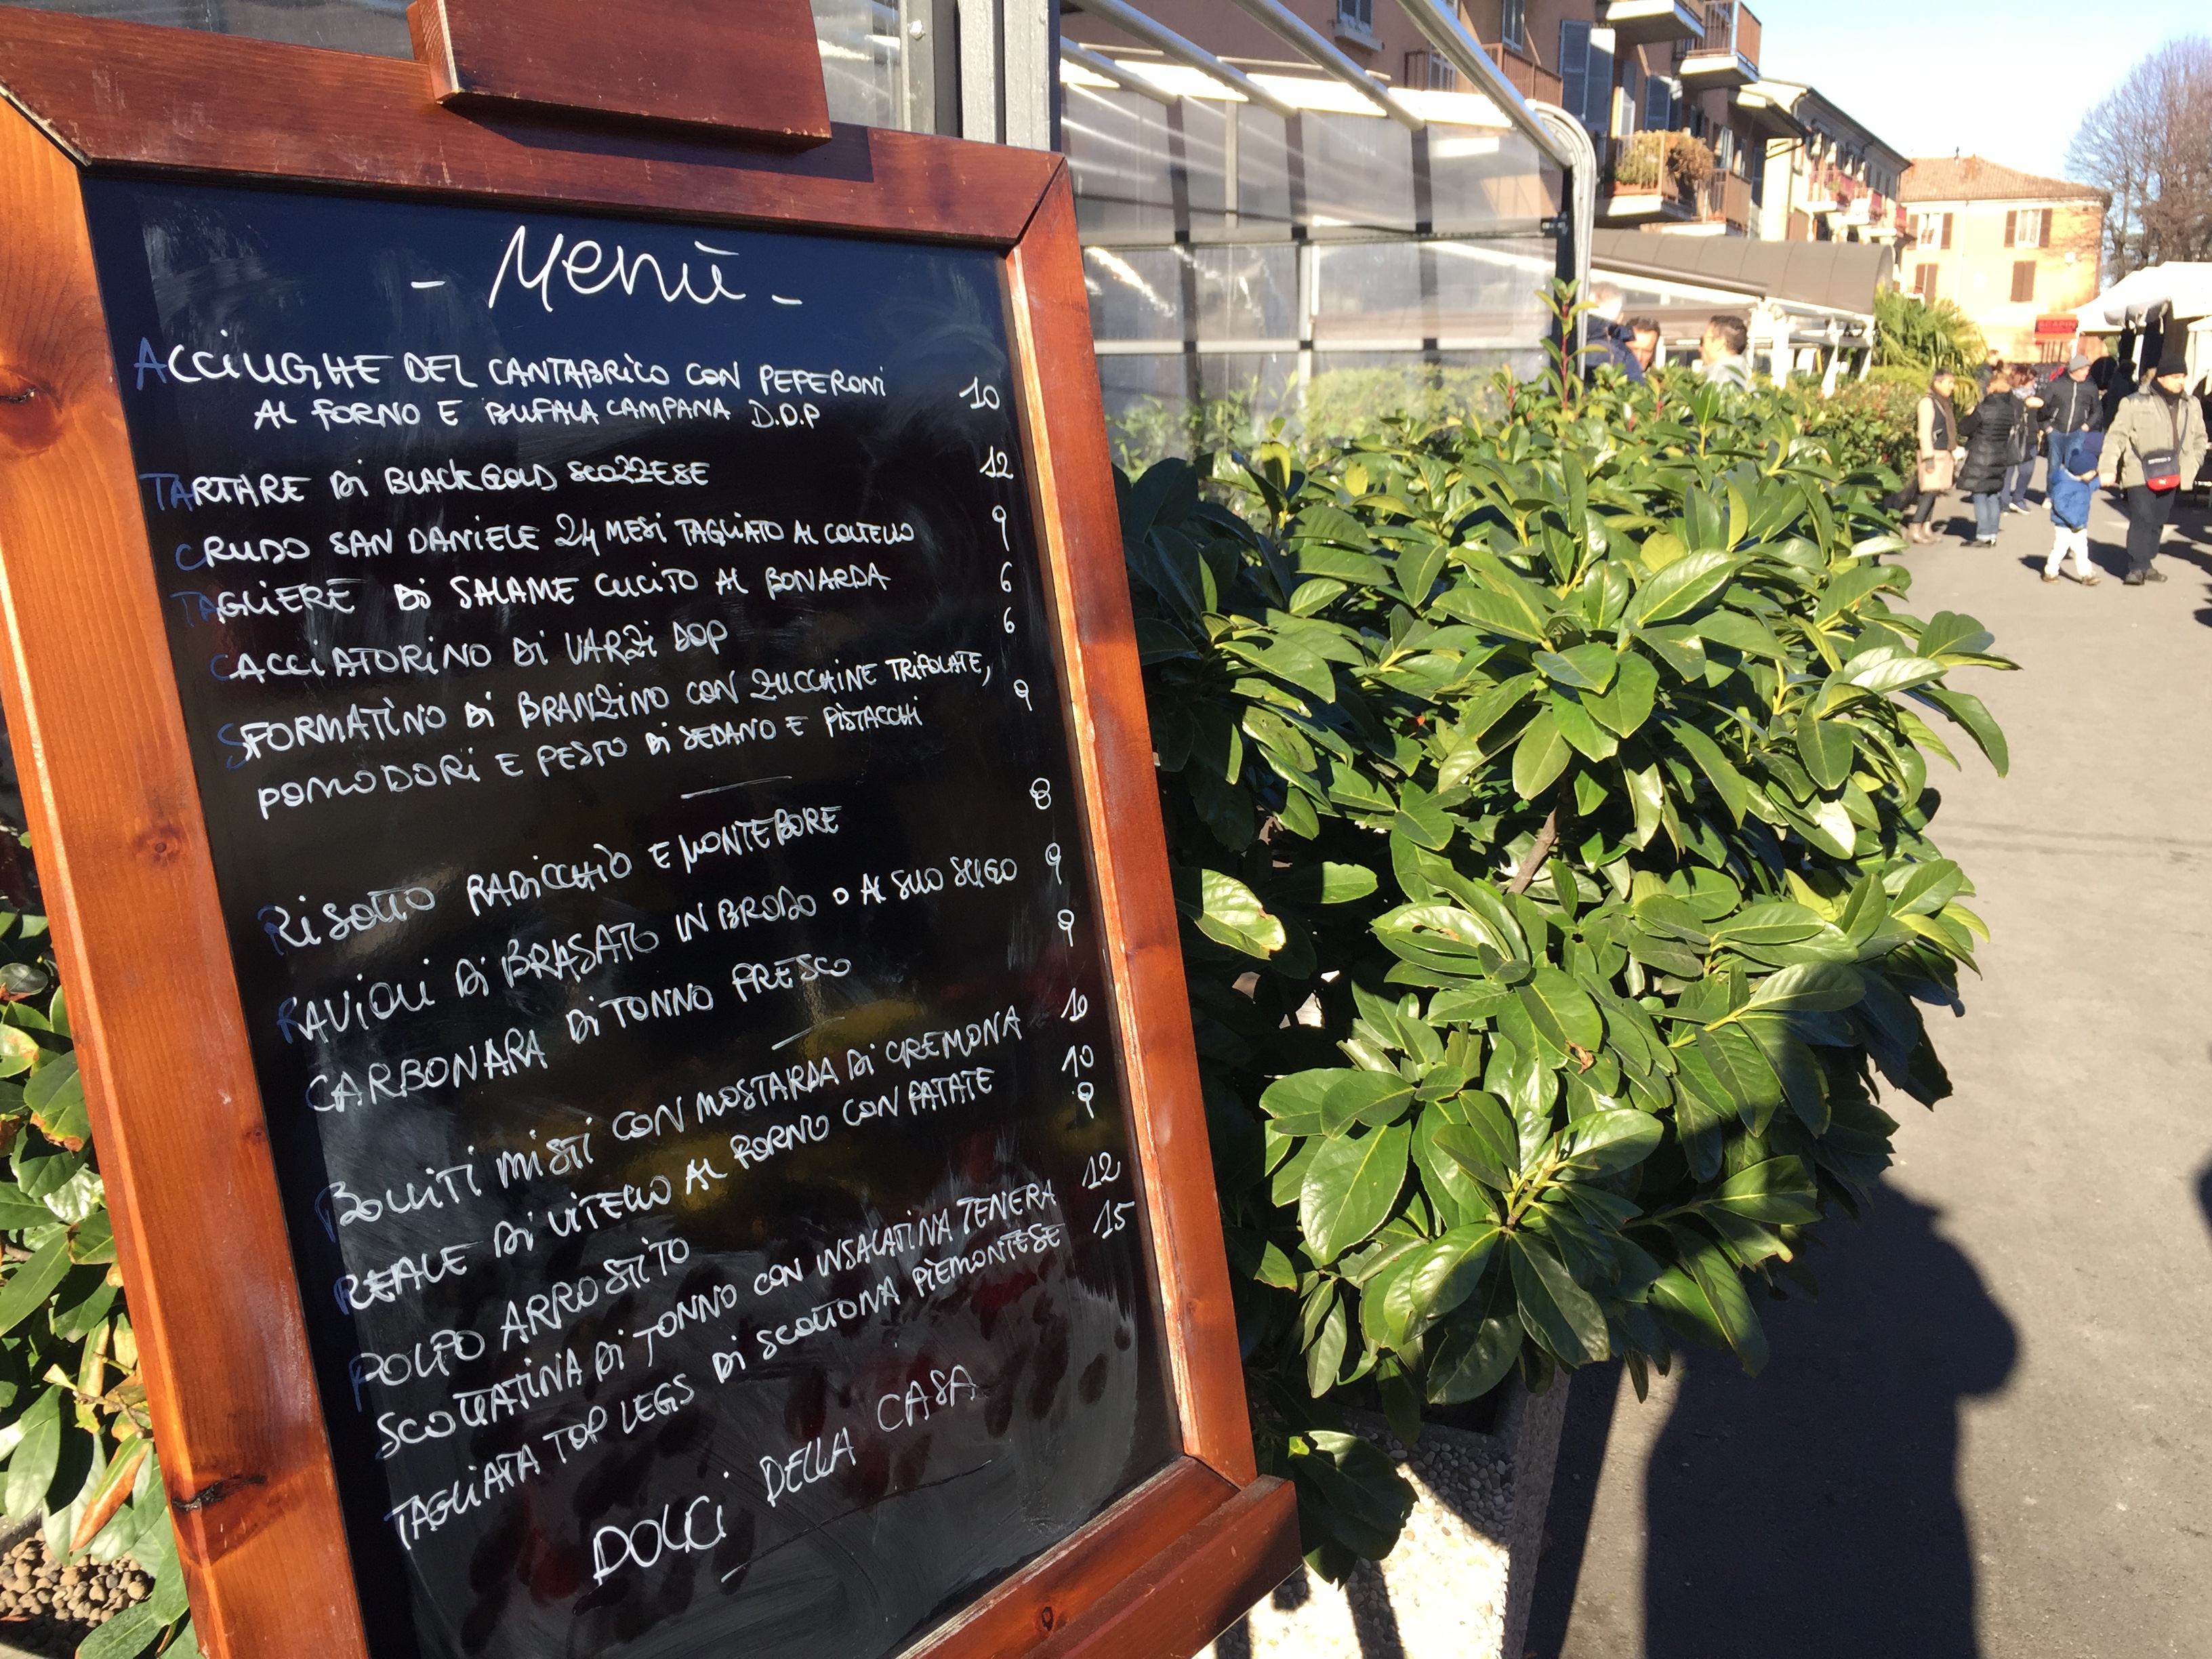 - Menù -
ACCIUGHE DEL CANTABRICO CON PEPERONI 10
AL FORNO E BUFALA CAMPANA D.O.P
TARTARE Di BLACK GOLD SCOZZESE 12
CRUDO SAN DANIELE 24 MESI TAGLIATO AL COLTELLO 9
TAGLIERE Di SALAME CUCITO AL BONARDA 6
CACCIATORINO Di VARZI DOP 6
SFORMATINO Di BRANZINO CON ZUCCHINE TRIFOLATE, 9
POMODORI E PESTO Di SEDANO E PISTACCHI
RISOTTO RADICCHIO E MONTEBORE 8
RAVIOLI Di BRASATO IN BRODO O AL SUO SUGO 9
CARBONARA Di TONNO FRESCO 9
BOLLITI MISTI CON MOSTARDA Di CREMONA 10
REALE Di VITELLO AL FORNO CON PATATE 10
POLPO ARROSTITO 9
SCOTTATINA Di TONNO CON INSALATINA TENERA 12
TAGLIATA TOP LEGS Di SCOTTONA PIEMONTESE 15
DOLCI DELLA CASA